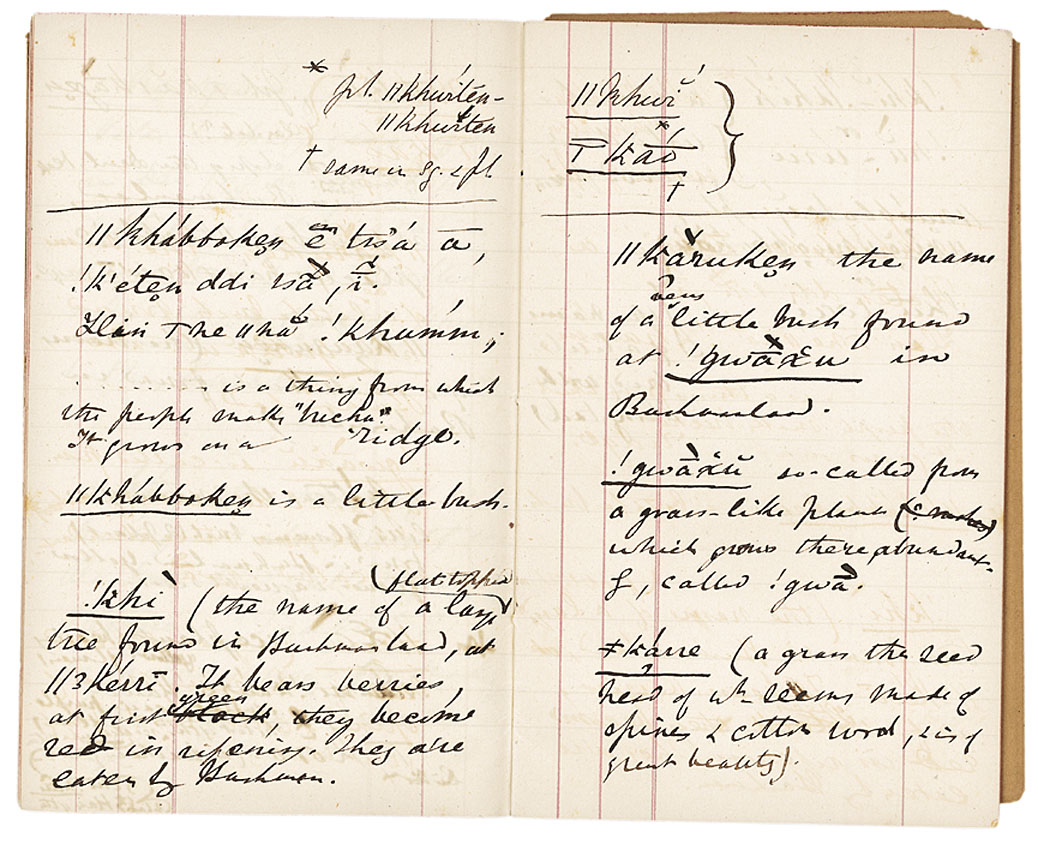 * pl. ǁkhwíten-
ǁkhwiten
† same in sg. & pl.
ǁkhábbokeṇ ē̆ tss̆á ā,
!k'éteṇ ddi ssā̀, ĭ.
Hăn ꞇ ne ǁnā !khúmm;
- - - - is a thing from which
the people make "buchu".
It grows on a ridge.
ǁkhábbokeṇ is a little bush.
!khì (the name of a large (flat topped)
tree found in Bushmanland, at
ǁʒkérrī. It bears berries,
at first green, they become
red in ripening. They are
eaten by Bushmen.
ǁkhwĭ́
ꞇ kăŏ
†
ǁkàrukeṇ the name
of a very little bush found
at !gwāx̆u in
Bushmanland.
!gwāx̆ŭ so-called from
a grass-like plant (? rushes)
which grows there abundant-
ly, called !gwā̀.
ǂkárre (a grass the seed
head of wh. seems made of
spines & cotton wool, & is of
great beauty).